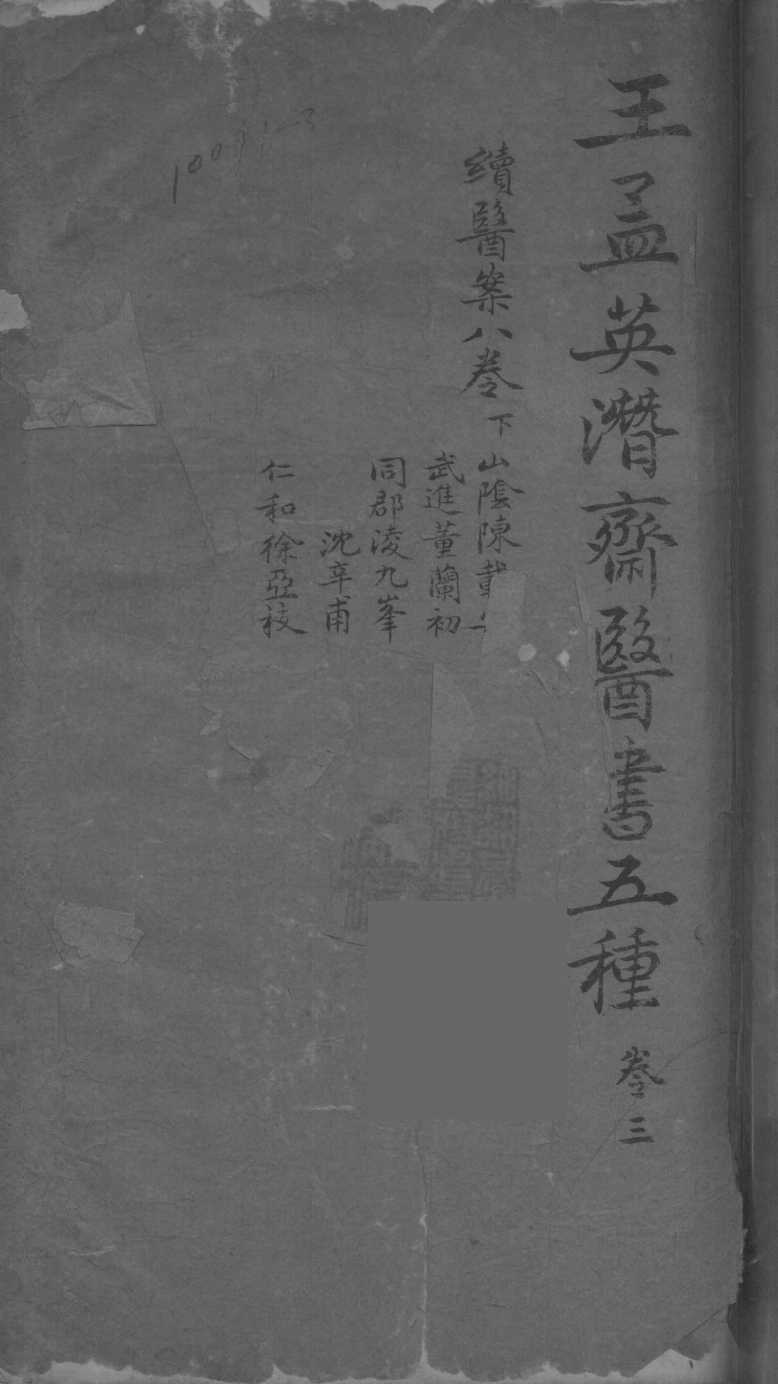 王孟英潛齋醫書五種 卷三
續醫案八卷 下
山陰陳載
武進董蘭初
同郡淩九峯
沈辛甫
仁和徐亞枝